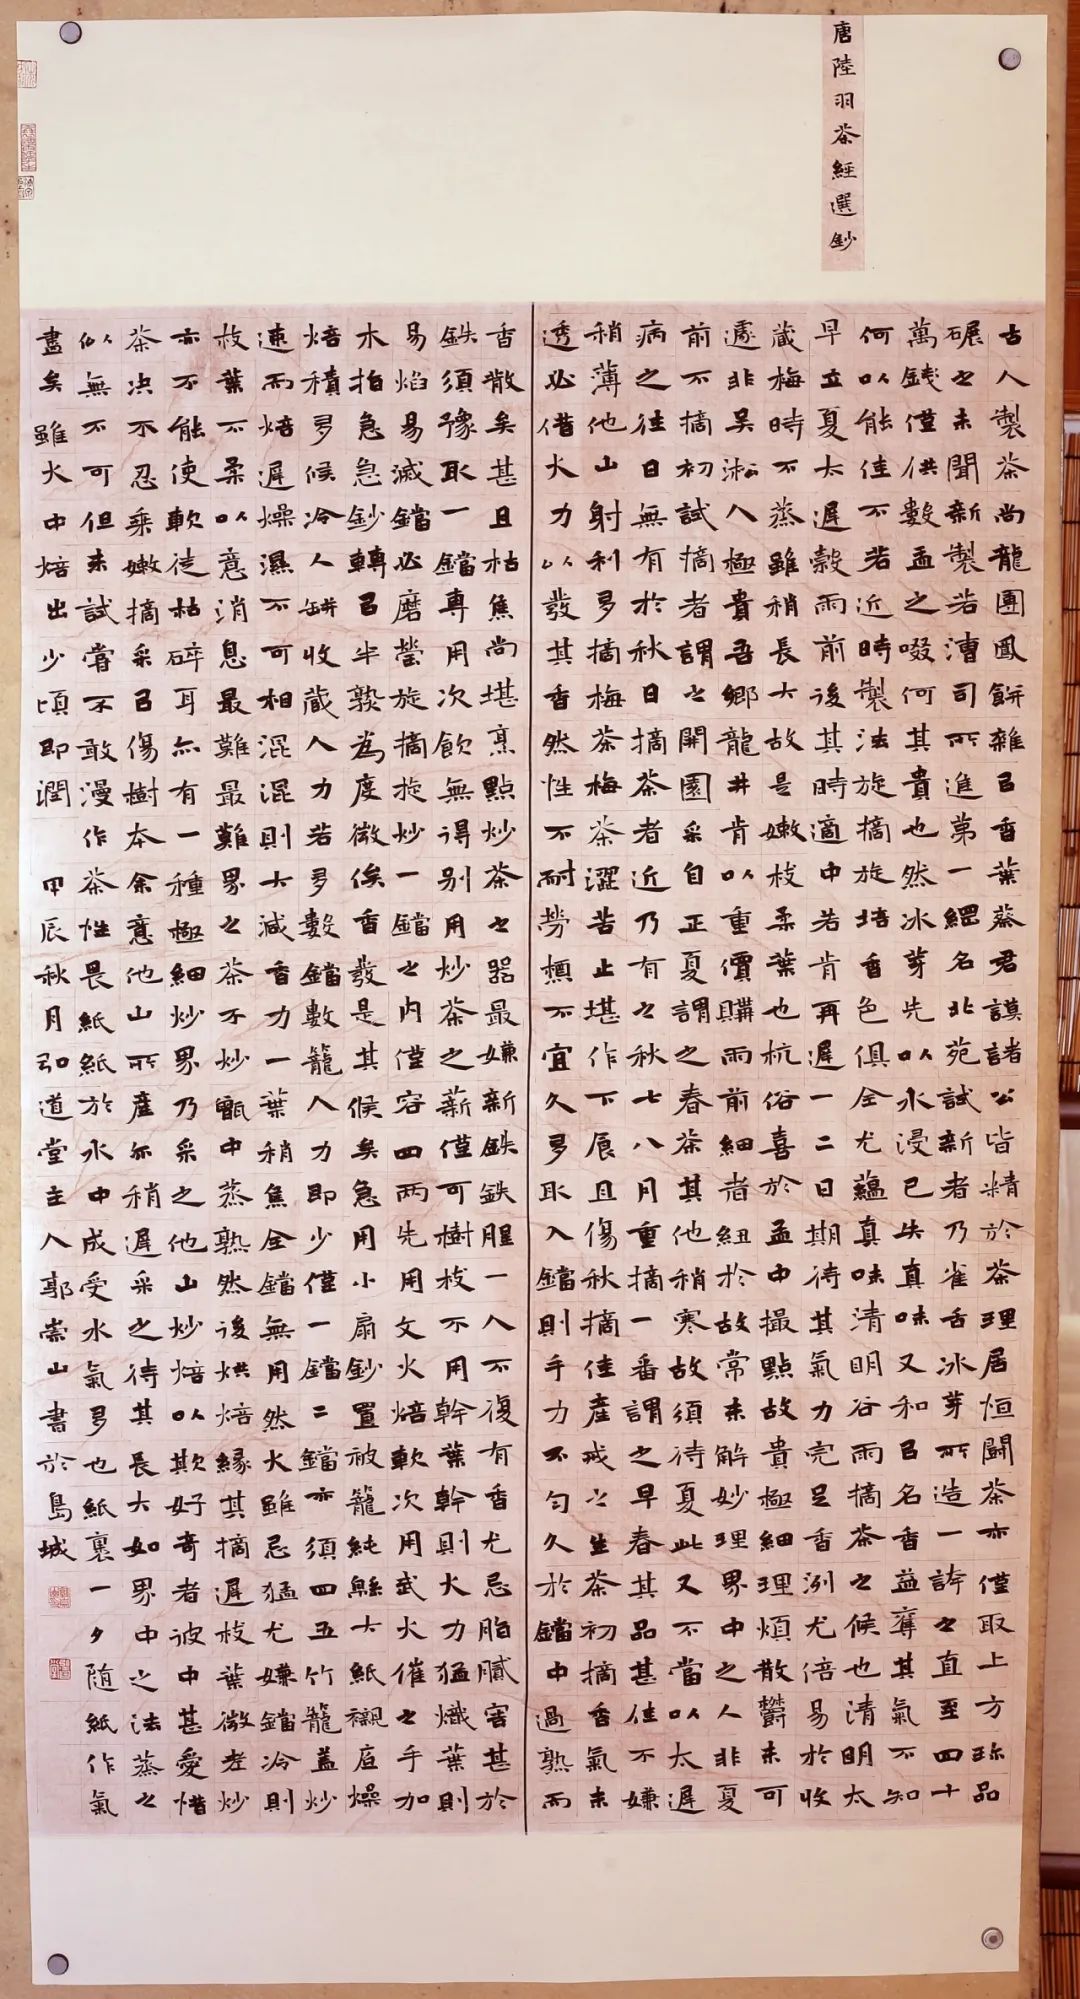 唐陸羽茶經選鈔
古人製茶尚龍團鳳餅雜㠯香葉蔡君謨諸公皆精於茶理居恒鬬茶亦僅取上方珍品
碾之未聞新製若漕司所進第一綱名北苑試新者乃雀舌冰芽所造一誇之直至四十
萬錢僅供數盂之啜何其貴也然冰芽先以水浸已失真味又和㠯名香益奪其氣不知
何以能佳不若近時製法旋摘旋焙香色俱全尤蘊真味清明谷雨摘茶之候也清明太
早立夏太遲穀雨前後其時適中若肯再遲一二日期待其氣力完足香洌尤倍易於收
藏梅時不蒸雖稍長大故是嫩枝柔葉也杭俗喜於盂中撮點故貴極細理煩散鬱未可
遽非吳淞人極貴吾鄉龍井肯以重價購雨前細者紐於故常未解妙理界中之人非夏
前不摘初試摘者謂之開園采自正夏謂之春茶其他稍寒故須待夏此又不當以太遲
病之往日無有於秋日摘茶者近乃有之秋七八月重摘一番謂之早春其品甚佳不嫌
稍薄他山射利多摘梅茶梅茶澀苦止堪作下食且傷秋摘佳產戒之生茶初摘香氣未
透必借火力以發其香然性不耐勞極不宜久多取入鐺則手力不勻久於鐺中過熟而
香散矣甚且枯焦尚堪烹點炒茶之器最嫌新鉄鉄腥一入不復有香尤忌脂膩害甚於
鉄須豫取一鐺專用次飲無得別用炒茶之薪僅可樹枝不用幹葉幹則火力猛熾葉則
易焰易滅鐺必磨瑩旋摘旋炒一鐺之内僅容四兩先用文火焙軟次用武火催之手加
木指急急鈔轉㠯半熟為度微俟香發是其候矣急用小扇鈔置被籠純緜大紙襯底燥
焙積多候冷人缾收藏人力若多數鐺數籠人力即少僅一鐺二鐺亦須四五竹籠蓋炒
速而焙遲燥濕不可相混混則大減香力一葉稍焦全鐺無用然火雖忌猛尤嫌鐺冷則
枝葉不柔以意消息最難最難界之茶不炒甑中蒸熟然後烘焙緣其摘遲枝葉微老炒
亦不能使軟徒枯碎耳亦有一種極細炒界乃采之他山炒焙以欺好奇者彼中甚愛惜
茶決不忍乘嫩摘采㠯傷樹本余意他山所產亦稍遲采之待其長大如界中之法蒸之
似無不可但未試嘗不敢漫作茶性畏紙紙於水中成受水氣多也紙裹一夕随紙作氣
盡矣雖火中焙出少頃即潤 甲辰秋月弘道堂主人郭崇山書於島城